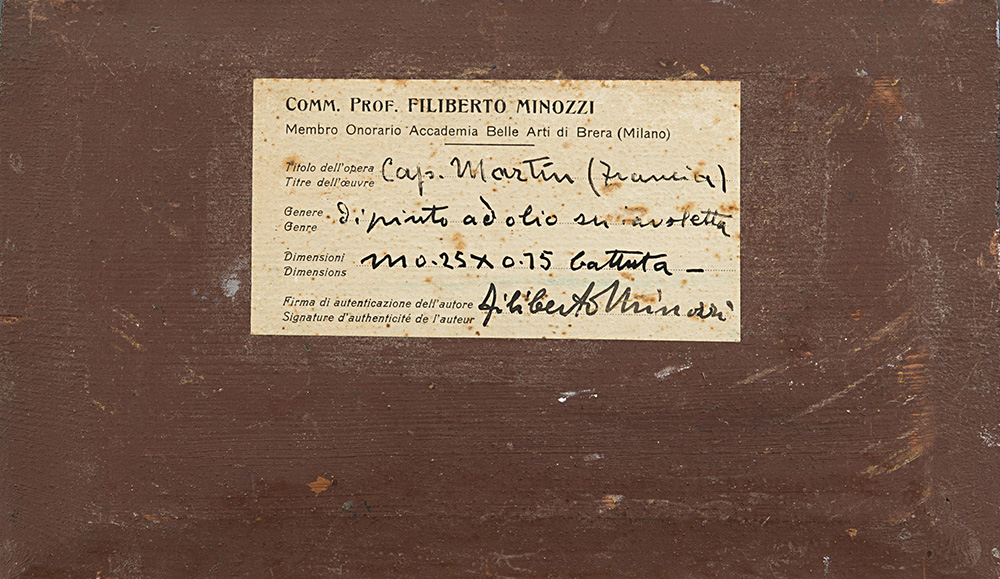 COMM. PROF. FILIBERTO MINOZZI
Membro Onorario Accademia Belle Arti di Brera (Milano)
Titolo dell'opera Cap. Martin (Francia)
Titre dell'œuvre
Genere dipinto ad olio su tavoletta
Genre
Dimensioni m 0.25 x 0.15 battuta –
Dimensions
Firma di autenticazione dell'autore Filiberto Minozzi
Signature d'authenticité de l'auteur